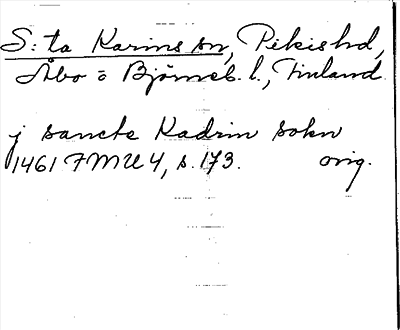 S:ta Karins sn, Pikishd,
Åbo o Björneb. l., Finland.
j sancte Kadrin sokn
1461 FMU 4, s. 173. orig.